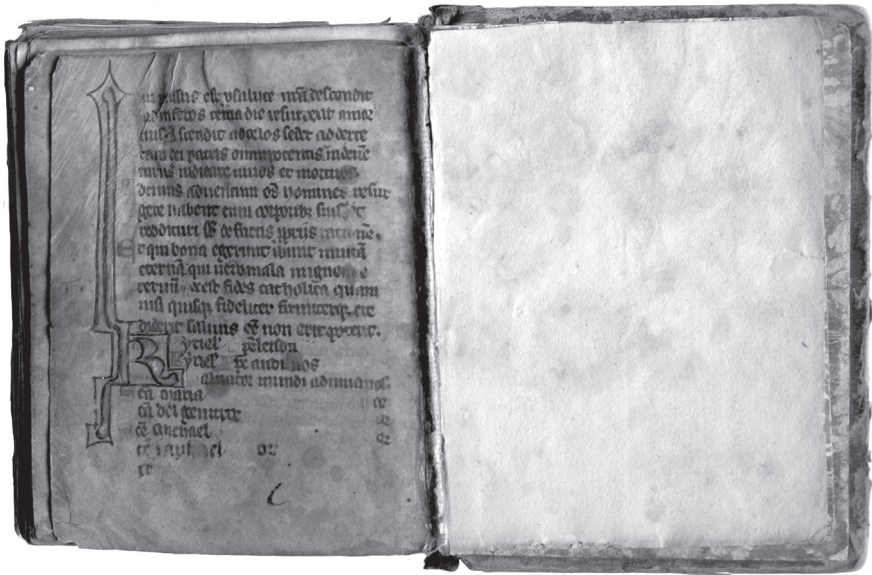 passus est salute nr̄a descendit
ad inferos tercia die resurrexit a mor
tuis Ascendit ad celos sedet ad dexte
ram dei patris omnipotentis inde uē
turus iudicare uiuos et mortuos
ad cuius aduentum om̄s homines resur
gere habent cum corporibꝫ suis et
reddituri sūt de factis ꝓpriis racionē
Et qui bona egerunt ibunt in uitā
eternā qui uero mala in ignem e
ternū hec est fides catholica quam
nisi quisqꝫ fideliter firmiterqꝫ cre
diderit saluus eē non erit poterit
Kyriel xp̄eleison
Kyriel xp̄e audi nos
Saluator mundi adiuua nos
Sc̄a maria
Sc̄a dei genitrix or
Sc̄e michael or
Sc̄e raphael or